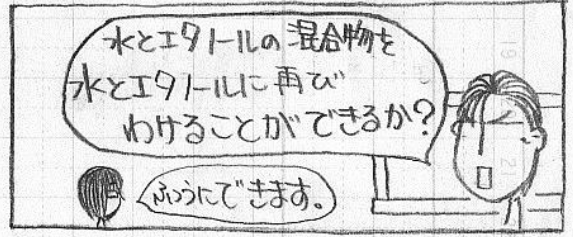 水とエタノールの混合物を
水とエタノールに再び
わけることができるか?
ふつうにできます。
19
21